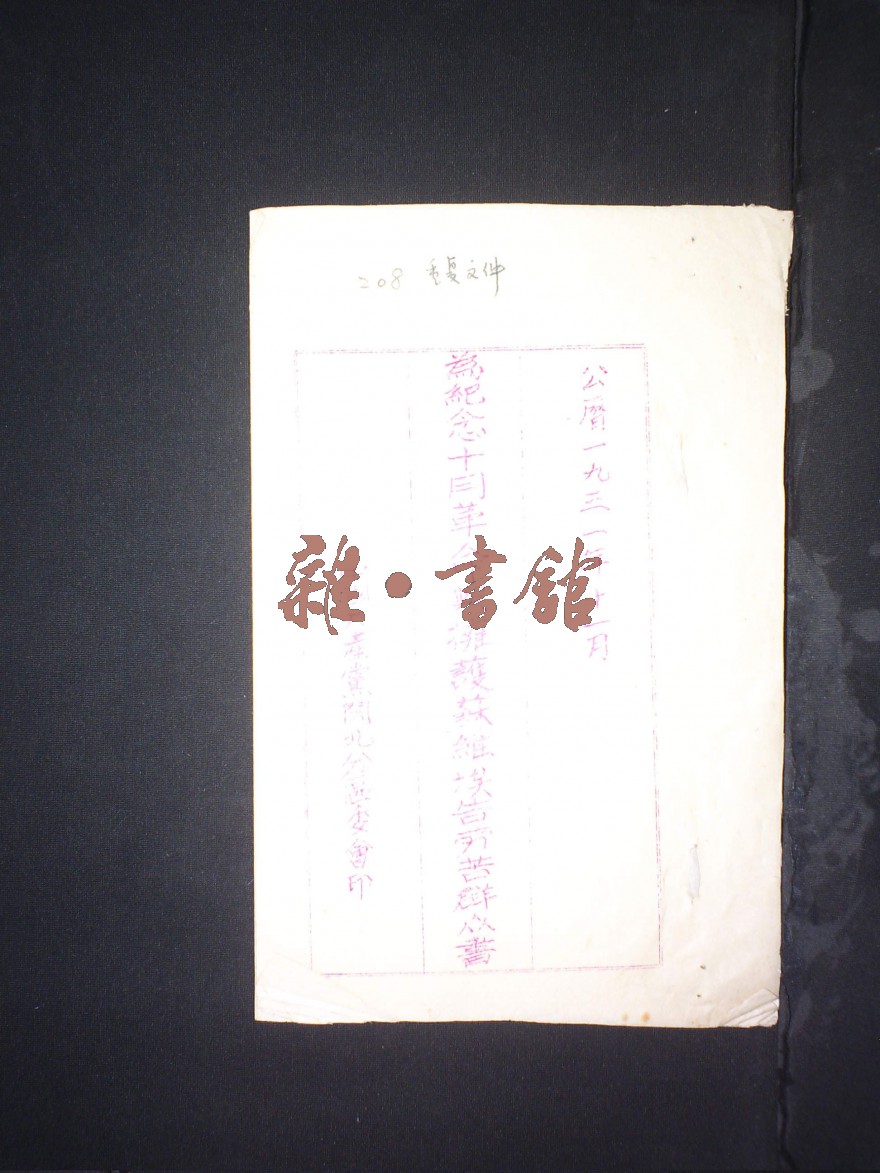 208 重复文件
公曆一九三一年十一月
為紀念十月革命 擁護蘇維埃告勞苦群众書
產黨閩北分區委會印
雜·書館